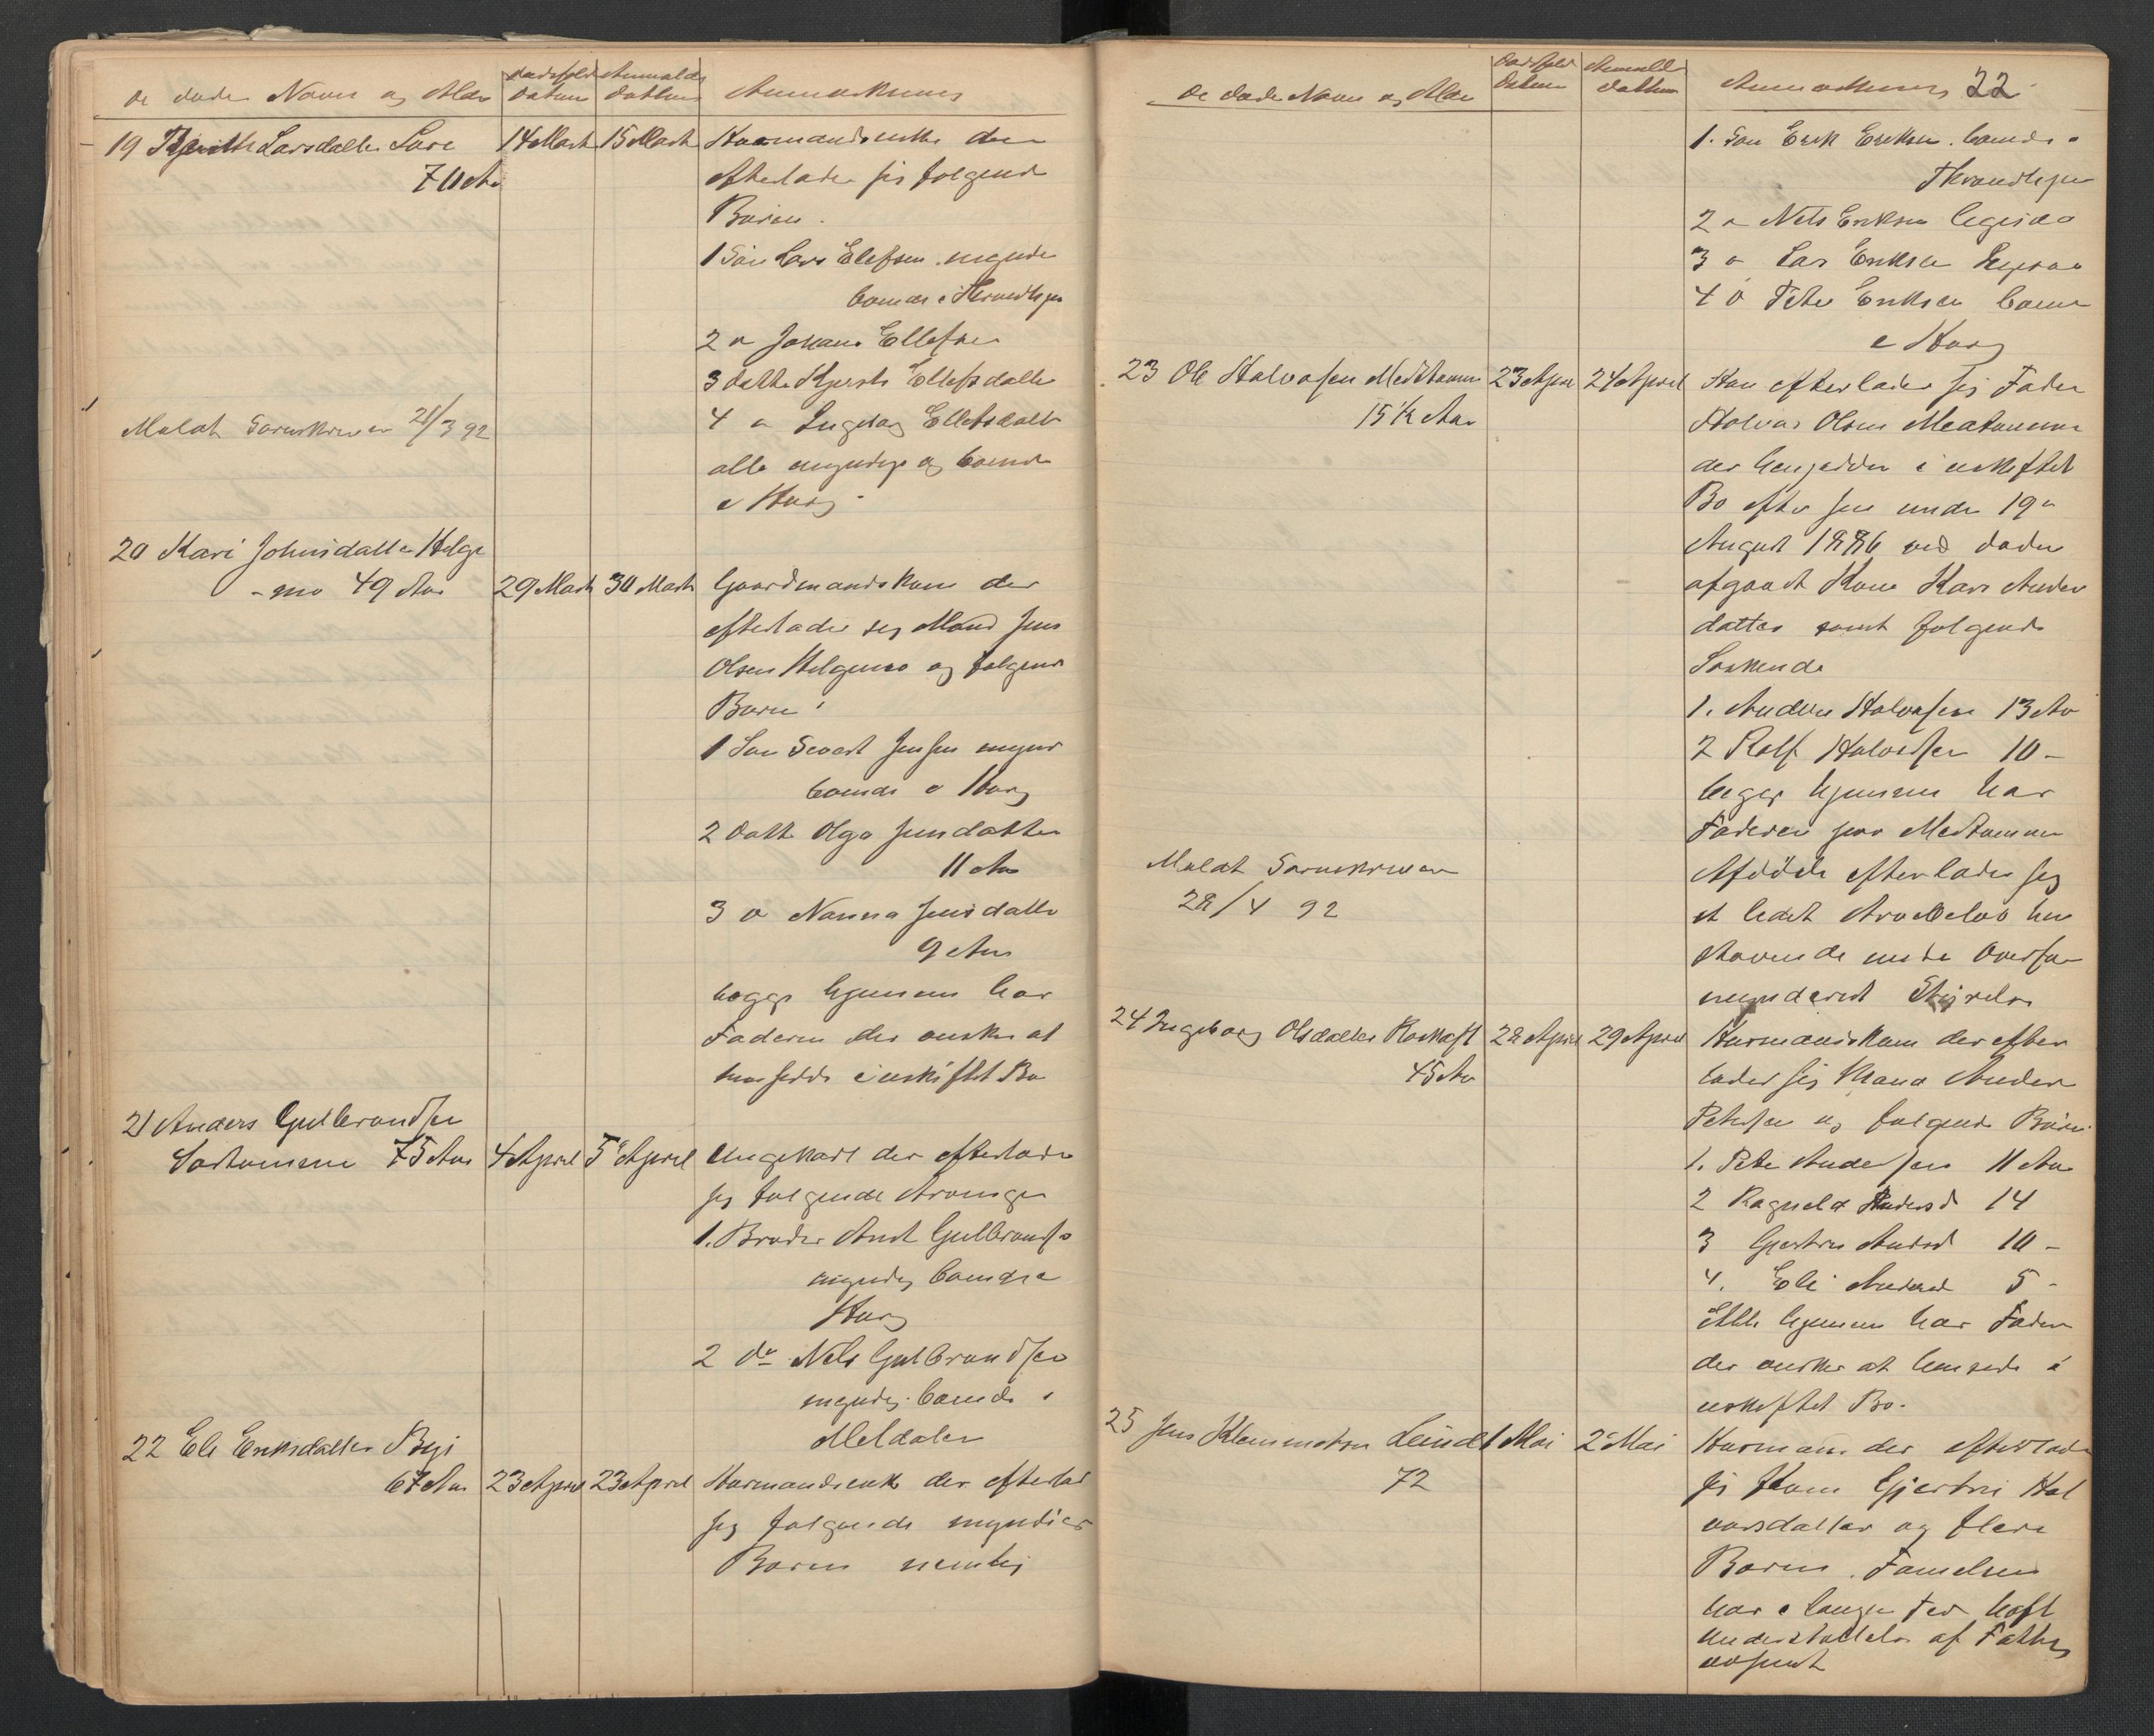 de døde Navn og Alder
Dødsfald Datum
Anmeldt Datum
Anmerkning
19 Larsdatter
70 Aar
14 Marts 15 Marts
Husmandsenke der
efterlader sig følgende
Børn.
1 Søn Lars Elefsen myndig
boende i Trondhjem
2 " Johans Ellefsen
3 datter Kjersti Ellefsdatter
4 " Ingebor Ellefsdatter
alle myndige og boende
i Horg.
Meldt Sorenskriveren 21/3 92
20 Kari Johnsdatter Helge
-mo 49 Aar 29 Marts 30 Marts
Gaardmandskone der
efterlader sig Mand Jens
Olsen Helgemo og følgende
Børn:
1 Søn Sivert Jensen myndig
boende i Horg
2 Datter Olga Jensdatter
11 Aar
3 " Nanna Jensdatter
9 Aar
begge hjemme hos
Faderen der ønsker at
hensidde i uskiftet Bo
21 Anders Gulbrandsen
75 Aar 4 April 5 April
Ungkarl der efterlader
sig følgende Arvinger
1. Broder Arnt Gulbrands
myndig boende i
Horg
2 do Nels Gulbrandsen
myndig boende i
Meldalen
22 Eli Eriksdatter
67 Aar 23 April 23 April
Husmandsenke der efterlad
sig følgende myndige
Børn nemlig
de døde Navn og Alder
Dødsfald Datum
Anmeldt Datum
Anmerkning 22
1. Søn Erik Eriksen boende i
Throndhjem
2 " Nels Eriksen ligesaa
3 " Lars Eriksen ligesaa
4 " Peter Eriksen boende
i Horg
23 Ole Halvorsen Medhammer 23 April 24 April
15 1/2 Aar
Han efterlader sig Fader
Halvor Olsen
der hensidder i uskiftet
Bo efter sin under 19
August 1886 ved døden
afgaaet Kone Kari Anders
datter samt følgende
Søskende
1. Anders Halvorsen 13 Aar
2 Rolf Halvorsen 10 -
begge hjemme hos
Faderen paa
Afdøde efterlader sig
et lidet Arvebeløb hen
staaende under Overfor
mynderiets Styrelse
Meldt Sorenskriveren
28/4 92
24 Ingeborg Olsdatter Roskaft 28 April 29 April
45 Aar
Husmandskone der efter
lader sig Mand Anders
Petersen og følgende Børn
1. Peter Andersen 11 Aar
2 Ragnild Andersd 14
3 Gjertru Andersd 10 -
4. Eli Andersd 5 -
Alle hjemme hos Faderen
der ønsker at hensidde i
uskiftet Bo.
25 Jens Klemmetsen 1 Mai 2 Mai
72
Husmand der efterlader
sig Kone Gjertru Hal
vorsdatter og flere
Børn. Familien
har i længere Tid haft
Understøttelse af Fattig
væsenet